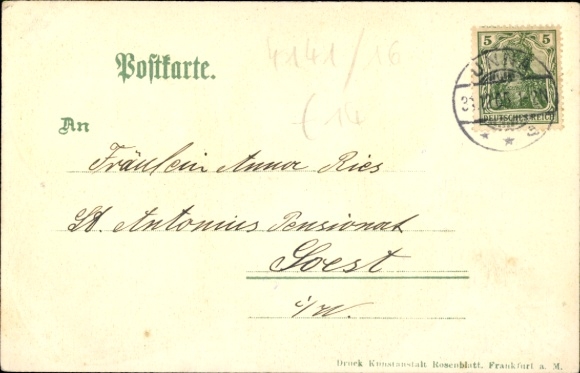 Postkarte.
4141/16
(14
5 5
DEUTSCHES REICH
UNNA
An
Fräulein Anna Ries
St. Antonius Pensionat
Soest
i/W.
Druck Kunstanstalt Rosenblatt. Frankfurt a. M.